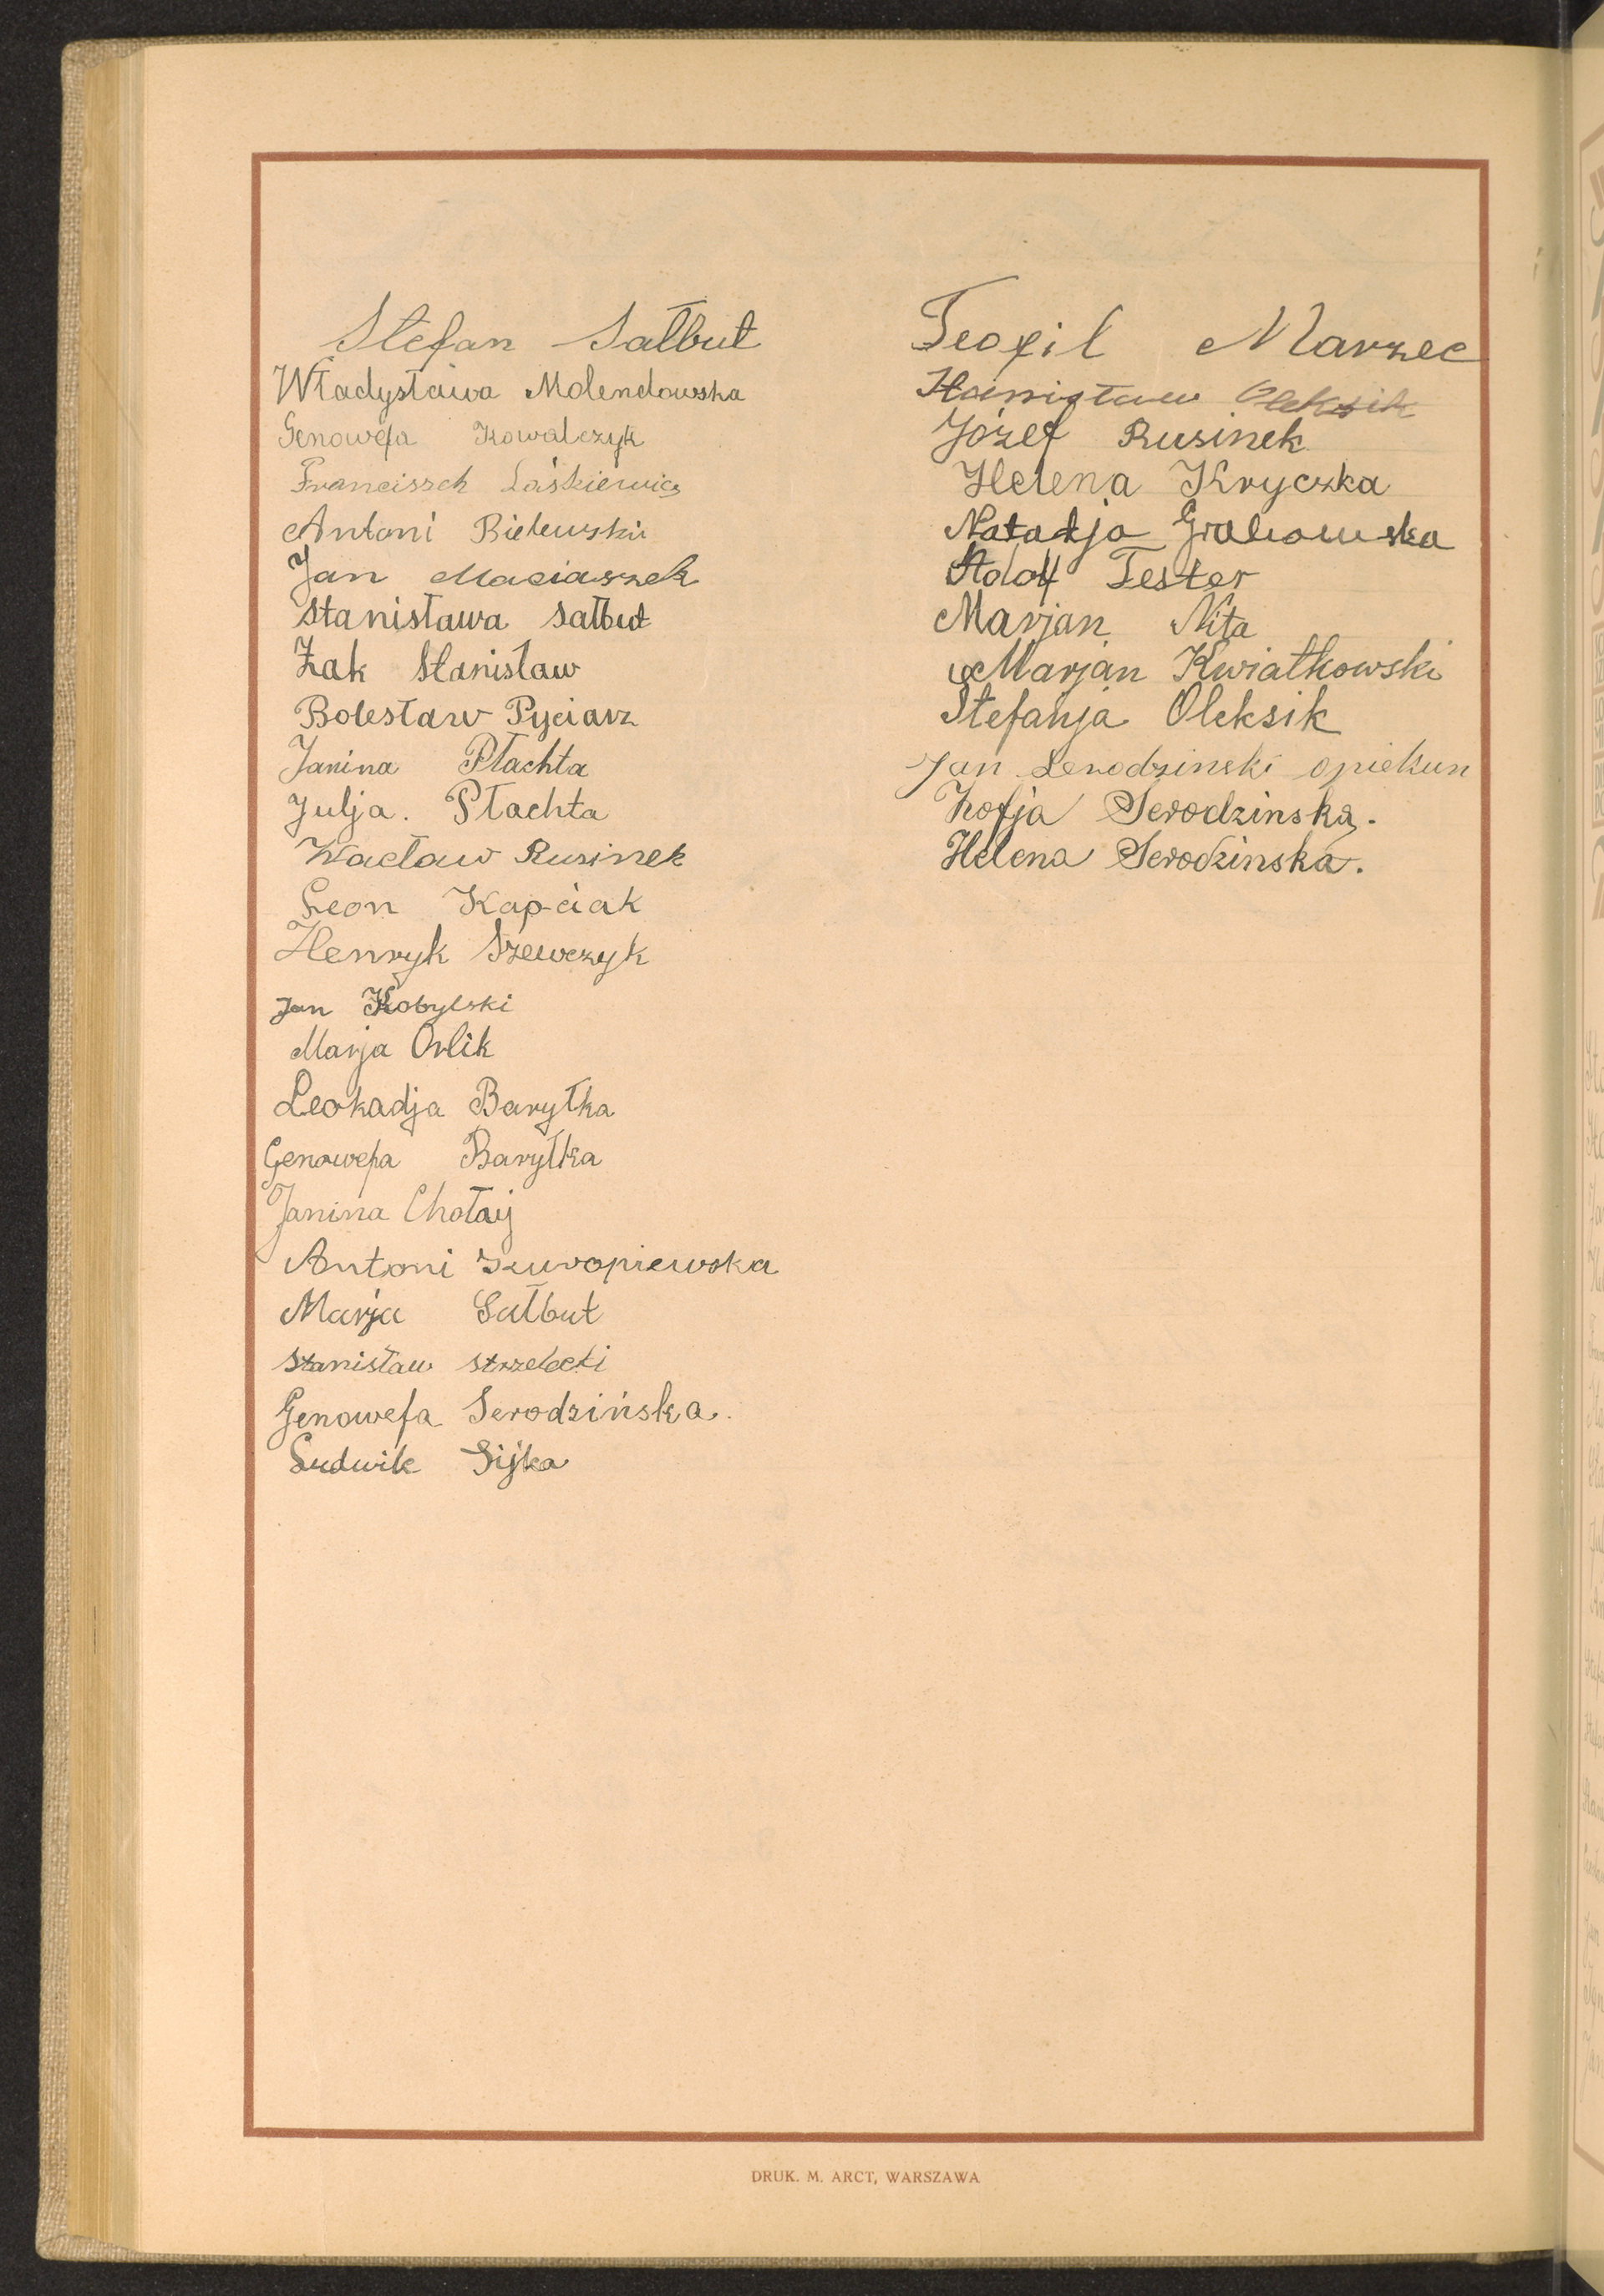 Stefan Sałbut
Władysława Molendowska
Genowefa Kowalczyk
Franciszek Laśkiewicz
Antoni Bielewski
Jan Maciaszek
Stanisława Sałbut
Żak Stanisław
Bolesław Pyciarz
Janina Płachta
Julja. Płachta
Wacław Rusinek
Leon Kapciak
Henryk Szewczyk
Jan Kobylski
Marja Orlik
Leokadja Baryłka
Genowefa Baryłka
Janina Chołaij
Antoni
Marja Sałbut
Stanisław Strzelecki
Genowefa Serodzińska.
Ludwik Sijka
Teofil Marzec
Stanisław Oleksik
Józef Rusinek
Helena Kryczka
Natalja Grabowska
Adolf Tester
Marjan Nita
Marjan Kwiatkowski
Stefanja Oleksik
Jan Serodzinski opiekun
Zofja Serodzinska.
Helena Serodzinska.
DRUK. M. ARCT, WARSZAWA